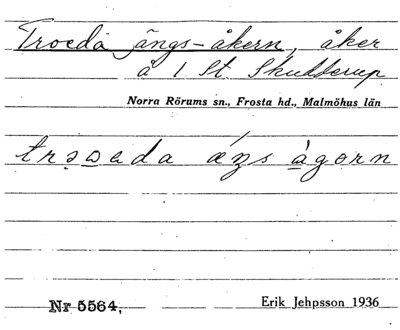 Troeda ängs-åkern, åker
å 1 St. Skudderup
Norra Rörums sn., Frosta hd., Malmöhus län
ågorn
Nr 5564,
Erik Jehpsson 1936